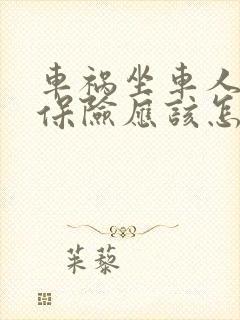 車禍坐車人
保險應該怎
茱藜